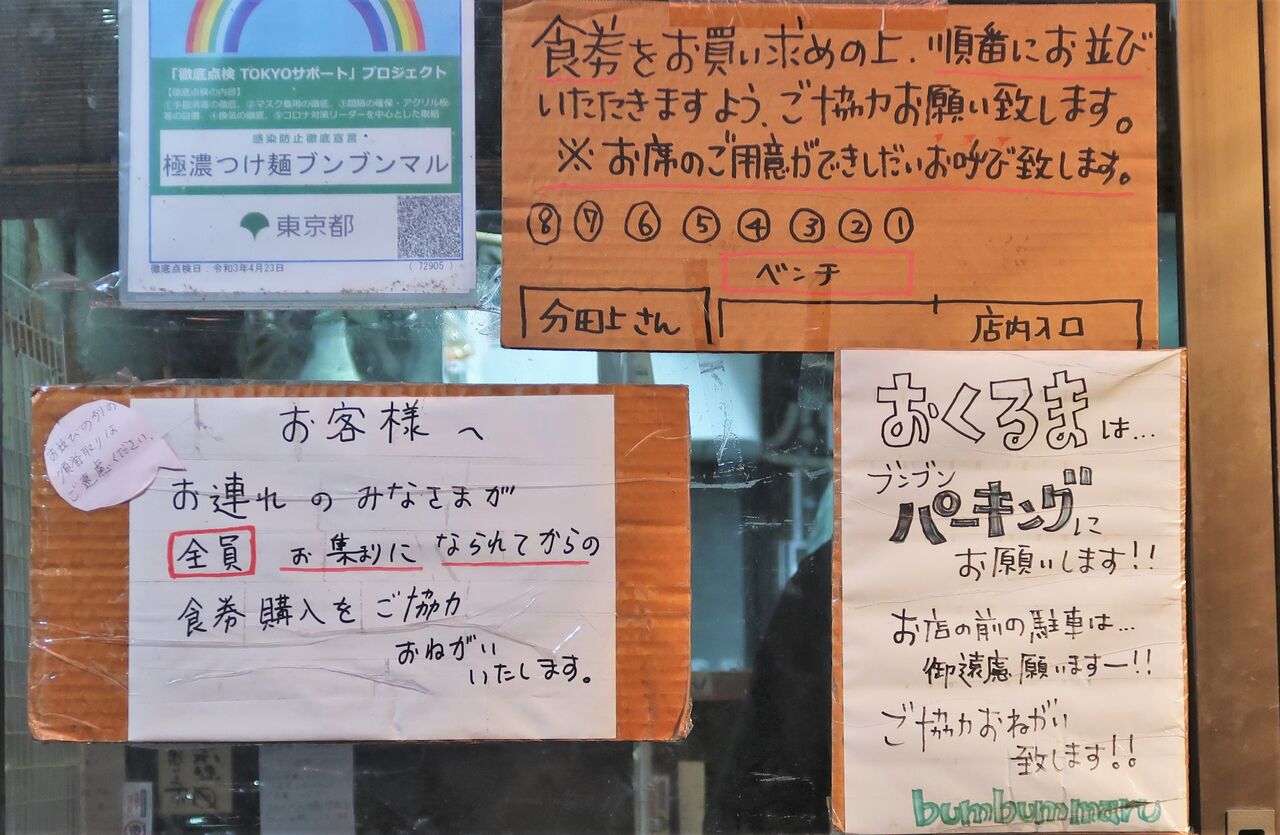 「徹底点検 TOKYOサポート」プロジェクト
【徹底点検の内容】
①手指消毒の徹底、②マスク着用の徹底、③間隔の確保・アクリル板
等の設置、④換気の徹底、⑤コロナ対策リーダーを中心とした取組
感染防止徹底宣言
極濃つけ麺ブンブンマル
東京都
徹底点検日：令和3年4月23日
（72905）
食券をお買い求めの上、順番にお並び
いただきますよう、ご協力お願い致します。
※お席のご用意ができしだいお呼び致します。
⑧ ⑦ ⑥ ⑤ ④ ③ ② ①
ベンチ
分田上さん
店内入口
お並びの列の
順番取りは
ご遠慮ください。
お客様へ
お連れのみなさまが
全員 お集まりに なられてからの
食券購入をご協力
おねがい
いたします。
おくるまは…
ブンブン
パーキングに
お願いします!!
お店の前の駐車は…
御遠慮願いますー!!
ご協力おねがい
致します!!
bumbummaru